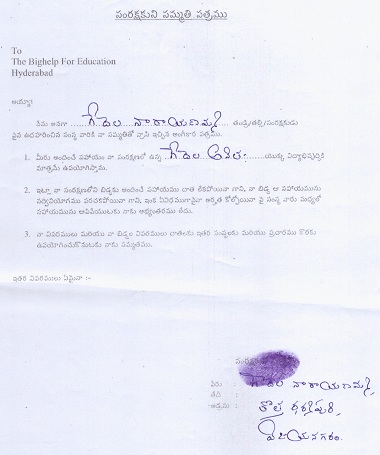 సంరక్షకుని సమ్మతి పత్రము
To
The Bighelp For Education
Hyderabad
అయ్యా!
నేను అనగా గేదెల నారాయణమ్మ తండ్రి/తల్లి/సంరక్షకుడు
పైన ఉదహరించిన సంస్థ వారికి నా సమ్మతితో వ్రాసి ఇచ్చిన అంగీకార పత్రము.
1. మీరు అందించే సహాయం నా సంరక్షణలో ఉన్న గేదెల అనిల యొక్క విద్యాభివృద్ధికి
మాత్రమే ఉపయోగిస్తాను.
2. ఇట్లు నా సంరక్షణలోని బిడ్డకు అందించే సహాయము చాత లేకపోయినా గాని, నా బిడ్డ ఆ సహాయమును
సద్వినియోగము పరచకపోయినా గాని, ఇంక ఏవిధముగానైనా అర్హత కోల్పోయినా పై సంస్థ వారు మధ్యలో
సహాయమును ఆపివేయుటకు నాకు అభ్యంతరము లేదు.
3. నా వివరములు మరియు నా బిడ్డ వివరములు దాతలకు ఇతర సంస్థలకు మరియు ప్రచారము కొరకు
ఉపయోగించుకొనుటకు నాకు సమ్మతము.
ఇతర వివరములు ఏమైనా :-
పేరు : గేదెల నారాయణమ్మ
తేది :
అడ్రసు :
విజయనగరం.